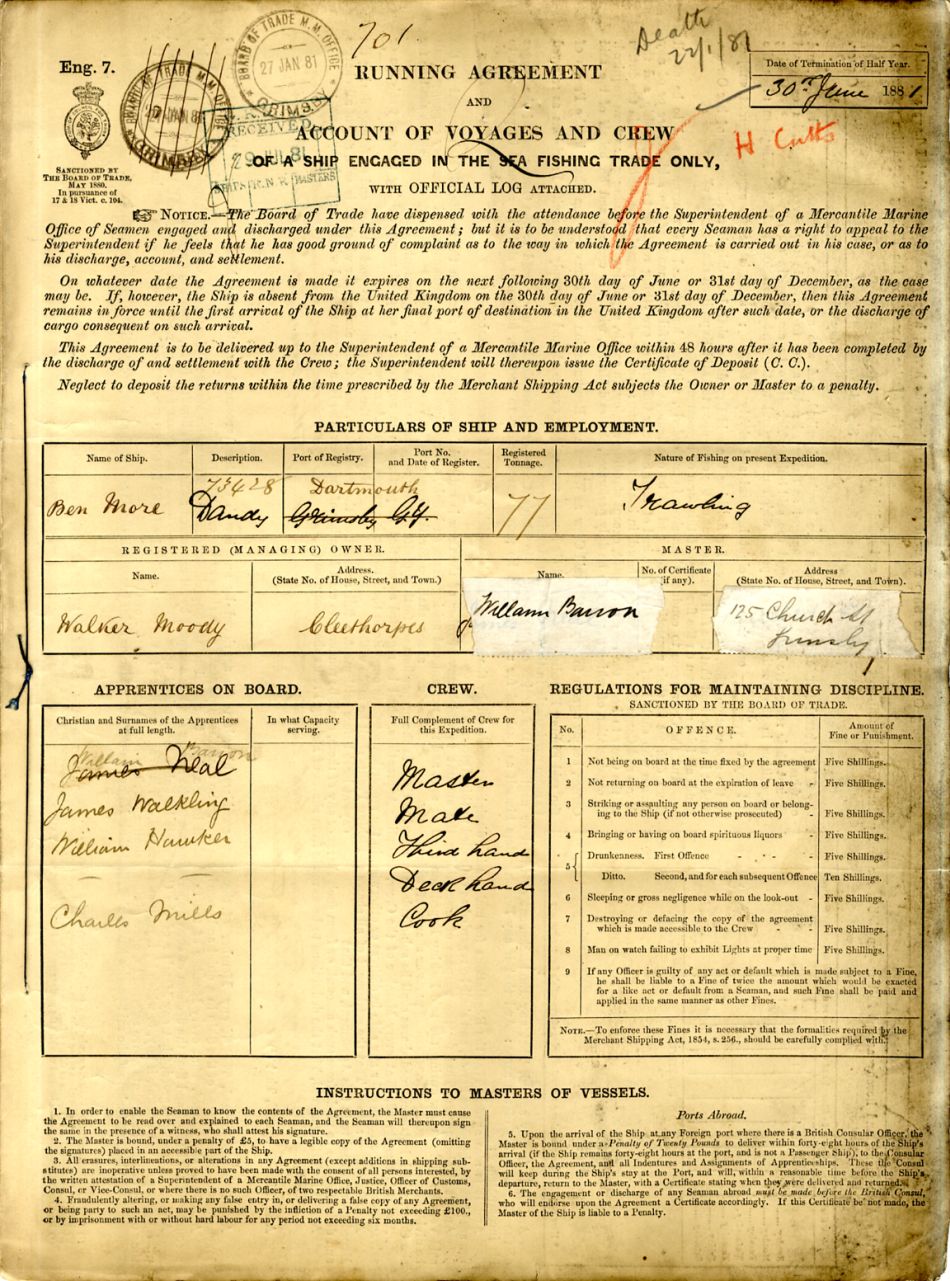 701
Death
22/1/81
Eng. 7.
BOARD OF TRADE M.M. OFFICE
27 JAN 81
GRIMSBY
BOARD OF TRADE M.M. OF
JAN 8
GRIMSBY
RECEIVED
29 JUL 81
RUNNING AGREEMENT
AND
ACCOUNT OF VOYAGES AND CREW
OF A SHIP ENGAGED IN THE SEA FISHING TRADE ONLY,
WITH OFFICIAL LOG ATTACHED.
Date of Termination of Half Year.
30th June 1881
H Cutts
SANCTIONED BY
THE BOARD OF TRADE,
MAY 1880.
In pursuance of
17 & 18 Vict. c. 104.
NOTICE.—The Board of Trade have dispensed with the attendance before the Superintendent of a Mercantile Marine
Office of Seamen engaged and discharged under this Agreement; but it is to be understood that every Seaman has a right to appeal to the
Superintendent if he feels that he has good ground of complaint as to the way in which the Agreement is carried out in his case, or as to
his discharge, account, and settlement.
On whatever date the Agreement is made it expires on the next following 30th day of June or 31st day of December, as the case
may be. If, however, the Ship is absent from the United Kingdom on the 30th day of June or 31st day of December, then this Agreement
remains in force until the first arrival of the Ship at her final port of destination in the United Kingdom after such date, or the discharge of
cargo consequent on such arrival.
This Agreement is to be delivered up to the Superintendent of a Mercantile Marine Office within 48 hours after it has been completed by
the discharge of and settlement with the Crew; the Superintendent will thereupon issue the Certificate of Deposit (C. C.).
Neglect to deposit the returns within the time prescribed by the Merchant Shipping Act subjects the Owner or Master to a penalty.
PARTICULARS OF SHIP AND EMPLOYMENT.
Name of Ship. Description. Port of Registry. Port No. and Date of Register. Registered Tonnage. Nature of Fishing on present Expedition.
73428 Dartmouth
Ben More Dandy Grimsby GY. 77 Trawling
REGISTERED (MANAGING) OWNER. MASTER.
Name. Address. (State No. of House, Street, and Town.) Name. No. of Certificate (if any). Address (State No. of House, Street, and Town).
Walker Moody Cleethorpes William Barron 125 Church St
Grimsby
APPRENTICES ON BOARD.
Christian and Surnames of the Apprentices at full length. In what Capacity serving.
William Barron
James Neal
James Walkling
William Hawker
Charles Mills
CREW.
Full Complement of Crew for this Expedition.
Master
Mate
Third hand
Deck hand
Cook
REGULATIONS FOR MAINTAINING DISCIPLINE.
SANCTIONED BY THE BOARD OF TRADE.
No. OFFENCE. Amount of Fine or Punishment.
1 Not being on board at the time fixed by the agreement Five Shillings.
2 Not returning on board at the expiration of leave - Five Shillings.
3 Striking or assaulting any person on board or belong-
ing to the Ship (if not otherwise prosecuted) - Five Shillings.
4 Bringing or having on board spirituous liquors - Five Shillings.
5 Drunkenness. First Offence - - - Five Shillings.
Ditto. Second, and for each subsequent Offence Ten Shillings.
6 Sleeping or gross negligence while on the look-out - Five Shillings.
7 Destroying or defacing the copy of the agreement
which is made accessible to the Crew - - Five Shillings.
8 Man on watch failing to exhibit Lights at proper time Five Shillings.
9 If any Officer is guilty of any act or default which is made subject to a Fine,
he shall be liable to a Fine of twice the amount which would be exacted
for a like act or default from a Seaman, and such Fine shall be paid and
applied in the same manner as other Fines.
NOTE.—To enforce these Fines it is necessary that the formalities required by the
Merchant Shipping Act, 1854, s. 256., should be carefully complied with.
INSTRUCTIONS TO MASTERS OF VESSELS.
1. In order to enable the Seaman to know the contents of the Agreement, the Master must cause
the Agreement to be read over and explained to each Seaman, and the Seaman will thereupon sign
the same in the presence of a witness, who shall attest his signature.
2. The Master is bound, under a penalty of £5, to have a legible copy of the Agreement (omitting
the signatures) placed in an accessible part of the Ship.
3. All erasures, interlineations, or alterations in any Agreement (except additions in shipping sub-
stitutes) are inoperative unless proved to have been made with the consent of all persons interested, by
the written attestation of a Superintendent of a Mercantile Marine Office, Justice, Officer of Customs,
Consul, or Vice-Consul, or where there is no such Officer, of two respectable British Merchants.
4. Fraudulently altering, or making any false entry in, or delivering a false copy of any Agreement,
or being party to such an act, may be punished by the infliction of a Penalty not exceeding £100.,
or by imprisonment with or without hard labour for any period not exceeding six months.
Ports Abroad.
5. Upon the arrival of the Ship at any Foreign port where there is a British Consular Officer, the
Master is bound under a Penalty of Twenty Pounds to deliver within forty-eight hours of the Ship's
arrival (if the Ship remains forty-eight hours at the port, and is not a Passenger Ship), to the Consular
Officer, the Agreement, and all Indentures and Assignments of Apprenticeships. These the Consul
will keep during the Ship's stay at the Port, and will, within a reasonable time before the Ship's
departure, return to the Master, with a Certificate stating when they were delivered and returned.
6. The engagement or discharge of any Seaman abroad must be made before the British Consul,
who will endorse upon the Agreement a Certificate accordingly. If this Certificate be not made, the
Master of the Ship is liable to a Penalty.